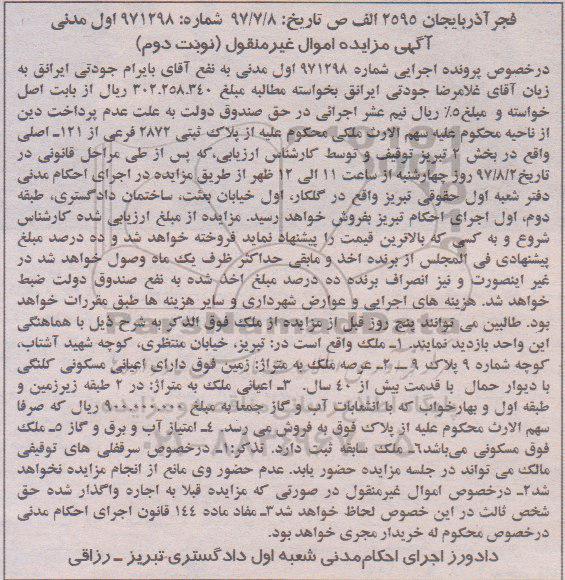 فجر آذربایجان ۲۵۹۵ الف ص تاریخ: ۹۷/۷/۸ شماره: ۹۷۱۲۹۸ اول مدنی
آگهی مزایده اموال غیرمنقول (نوبت دوم)
درخصوص پرونده اجرایی شماره ۹۷۱۲۹۸ اول مدنی به نفع آقای بایرام جودتی ایرانق به
زیان آقای غلامرضا جودتی ایرانق بخواسته مطالبه مبلغ ۳۰۲.۲۵۸.۳۴۰ ریال از بابت اصل
خواسته و مبلغ۵٪ ریال نیم عشر اجرائی در حق صندوق دولت به علت عدم پرداخت دین
از ناحیه محکوم علیه سهم الارث ملکی محکوم علیه از پلاک ثبتی ۲۸۷۲ فرعی از ۱۲۱ـ اصلی
واقع در بخش تبریز توقیف و توسط کارشناس ارزیابی،که پس از طی مراحل قانونی در
تاریخ۹۷/۸/۲ روز چهارشنبه از ساعت ۱۱ الی ۱۲ ظهر از طریق مزایده در اجرای احکام مدنی
دفتر شعبه اول حقوقی تبریز واقع در گلکار، اول خیابان بعثت، ساختمان دادگستری، طبقه
دوم، اول اجرای احکام تبریز بفروش خواهد رسید. مزایده از مبلغ ارزیابی شده کارشناس
شروع و به کسی که بالاترین قیمت را پیشنهاد نماید فروخته خواهد شد و ده درصد مبلغ
پیشنهادی فی المجلس از برنده اخذ و مابقی حداکثر ظرف یک ماه وصول خواهد شد در
غیر اینصورت و نیز انصراف برنده ده درصد مبلغ اخذ شده به نفع صندوق دولت ضبط
خواهد شد. هزینه های اجرایی و عوارض شهرداری و سایر هزینه ها طبق مقررات خواهد
بود. طالبین می توانند پنج روز قبل از مزایده از ملک فوق الذکر به شرح ذیل با هماهنگی
این واحد بازدید نمایند. ۱ـ ملک واقع است در: تبریز، خیابان منتظری، کوچه شهید آشتاب،
کوچه شماره ۹ پلاک ۹ ـ ۲ـ عرصه ملک به متراژ: زمین فوق دارای اعیانی مسکونی کلنگی
با دیوار حمال با قدمت بیش از ۴۰ سال. ۳ـ اعیانی ملک به متراژ: در ۲ طبقه زیرزمین و
طبقه اول و بهارخواب که با انشعابات آب و گاز جمعا به مبلغ ریال که صرفا
سهم الارث محکوم علیه از پلاک فوق به فروش می رسد. ۴ـ امتیاز آب و برق و گاز ۵ـ ملک
فوق مسکونی می‌باشد۶ـ ملک سابقه ثبت دارد. تذکر:۱ـ درخصوص سرقفلی های توقیفی
مالک می تواند در جلسه مزایده حضور یابد. عدم حضور وی مانع از انجام مزایده نخواهد
شد۲ـ درخصوص اموال غیرمنقول در صورتی که مزایده قبلا به اجاره واگذار شده حق
شخص ثالث در این خصوص لحاظ خواهد شد۳ـ مفاد ماده ۱۴۴ قانون اجرای احکام مدنی
درخصوص محکوم له خریدار مجری خواهد بود.
دادورز اجرای احکام‌مدنی شعبه اول دادگستری تبریز ـ رزاقی